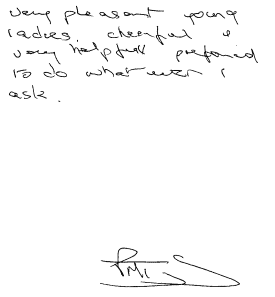 Very pleasant young
ladies. cheerful &
very helpfull prepared
to do what ever I
ask.